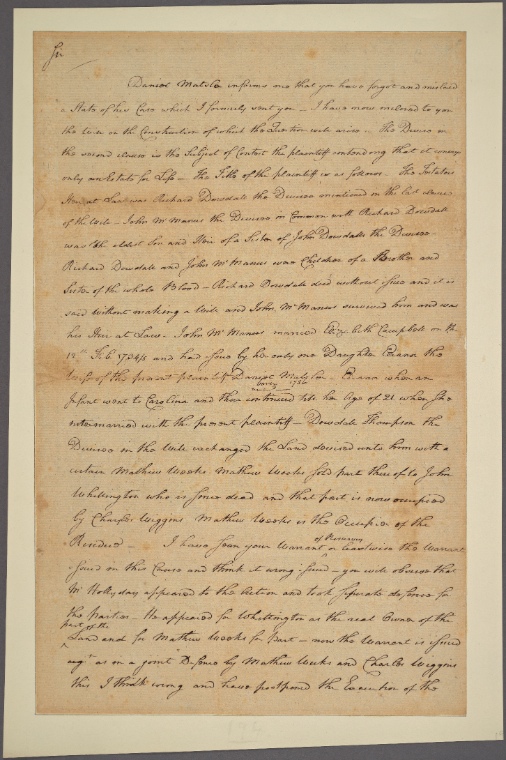 Sir
Daniel Matslar informs me that you have forgot and mislaid
a State of his Case which I formerly sent you – I have now inclosed to you
the Will on the Construction of which the Question will arise – The Devise in
the second clause is the Subject of Contest the plaintiff contending that it conveys
only an Estate for Life – The Title of the plaintiff is as follows – The Testators
Heir at Law was Richard Dowdale the Devisee mentioned in the last clause
of the Will – John McManus the Devisee in Common with Richard Dowdale
was the eldest Son and Heir of a Sister of John Dowdale the Devisor –
Richard Dowdale and John McManus was Children of a Brother and
Sister of the whole Blood – Richard Dowdale died without Issue and it is
said without making a Will and John McManus survived him and was
his Heir at Law – John McManus married Elizabeth Campbell on the
12th Feb. 1754/5 and had Issue by her only one Daughter Emma the
Wife of the present plaintiff Daniel Matslar – Emma when an
early 1786
Infant went to Carolina and there continued till her Age of 21 when She
intermarried with the present plaintiff – Dowdale Thompson the
Devisee in the Will exchanged the Land devised unto him with a
certain Mathew Weeks Mathew Weeks sold part thereof to John
Whittington who is since dead and that part is now occupied
by Charles Wiggins Mathew Weeks is the Occupier of the
Residue – I have seen your Warrant or likewise the Warrant
of Resurvey
issued on this Cause and think it wrong issued – you will observe that
Mr Hollyday appeared to the Action and took separate defence for
the parties – He appeared for Whittington as the real Owner of the
part of the
Land and for Mathew Weeks for part – now the Warrant is issued
as on a joint Defence by Mathew Weeks and Charles Wiggins
this I think wrong and have postponed the Execution of the